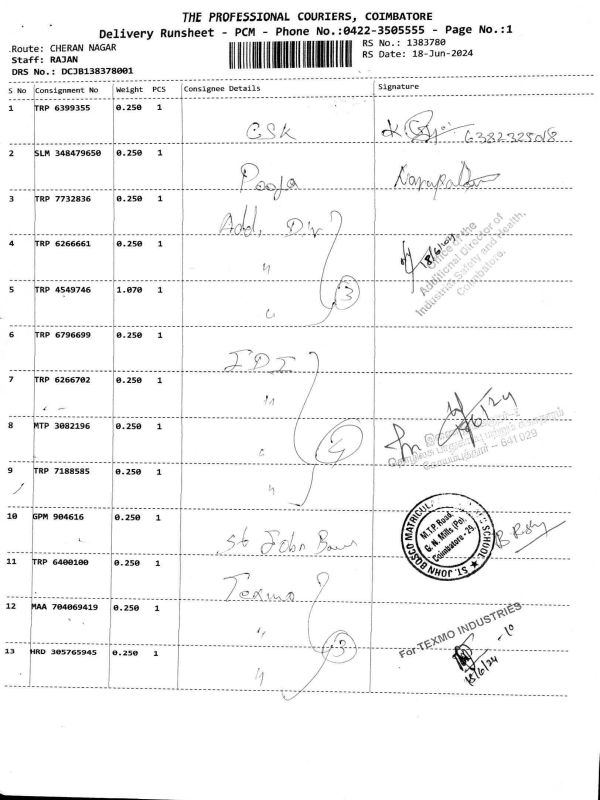 THE PROFESSIONAL COURIERS, COIMBATORE
Delivery Runsheet - PCM - Phone No.:0422-3505555 - Page No.:1
Route: CHERAN NAGAR
RS No.: 1383780
Staff: RAJAN
RS Date: 18-Jun-2024
DRS No.: DCJB138378001
S No Consignment No Weight PCS Consignee Details Signature
1 TRP 6399355 0.250 1
GSK
2 SLM 348479650 0.250 1
Pooja
3 TRP 7732836 0.250 1
Add, Dir
4 TRP 6266661 0.250 1
"
Office of the
Additional Director of
Industrial Safety and Health,
Coimbatore.
5 TRP 4549746 1.070 1
3
"
6 TRP 6796699 0.250 1
IDI
7 TRP 6266702 0.250 1
"
8 MTP 3082196 0.250 1
"
4
641 029
9 TRP 7188585 0.250 1
"
10 GPM 904616 0.250 1
St John
ST. JOHN BOSCO MATRICUL SCHOOL
M.T.P. Road,
G. N. Mills (Po),
Coimbatore - 29.
11 TRP 6400100 0.250 1
Texmo
12 MAA 704069419 0.250 1
"
3
For TEXMO INDUSTRIES
13 HRD 305765945 0.250 1
"
18/6/24